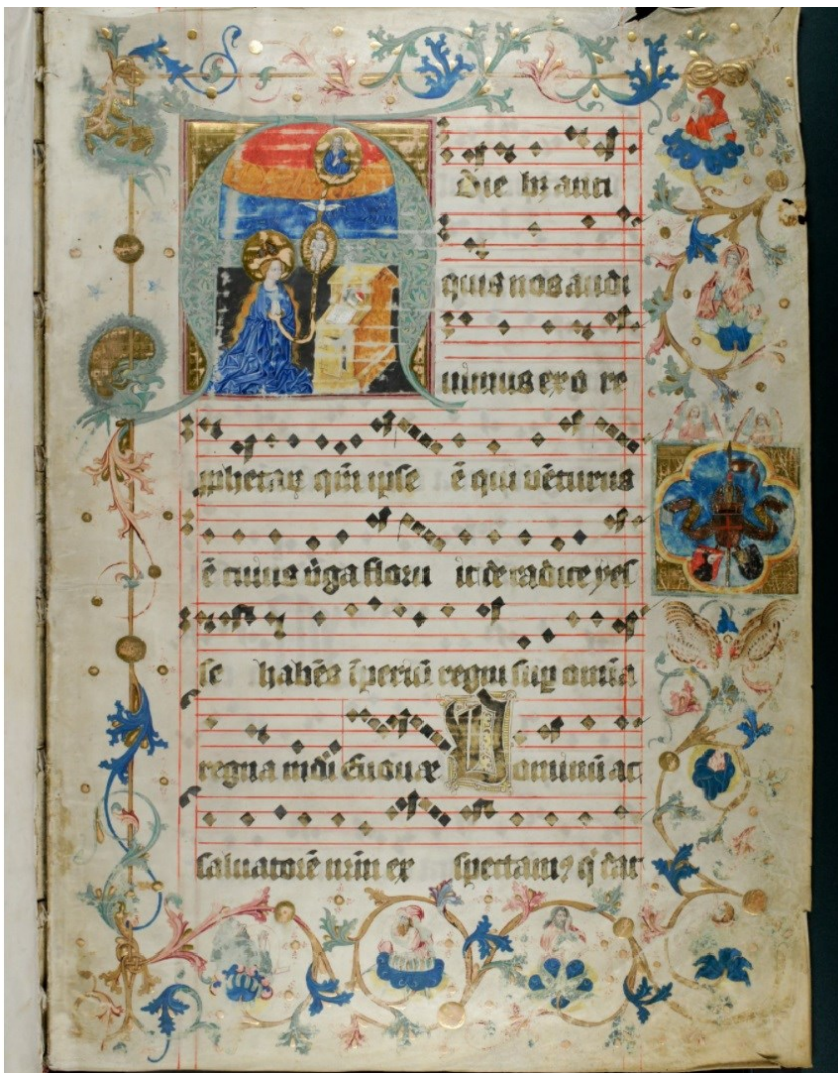 A die bꝫ anti
quis nos audi
uimus ex o re
ꝓphetaꝝ qm̄ ipse ē qui uēturus
ē cuius v̄ga floru it de radice yes
se habēs īperiū regni suꝑ omīa
regna mūdi Euouae Dominū ac
saluatorē nr̄m ex spectamꝰ q̄